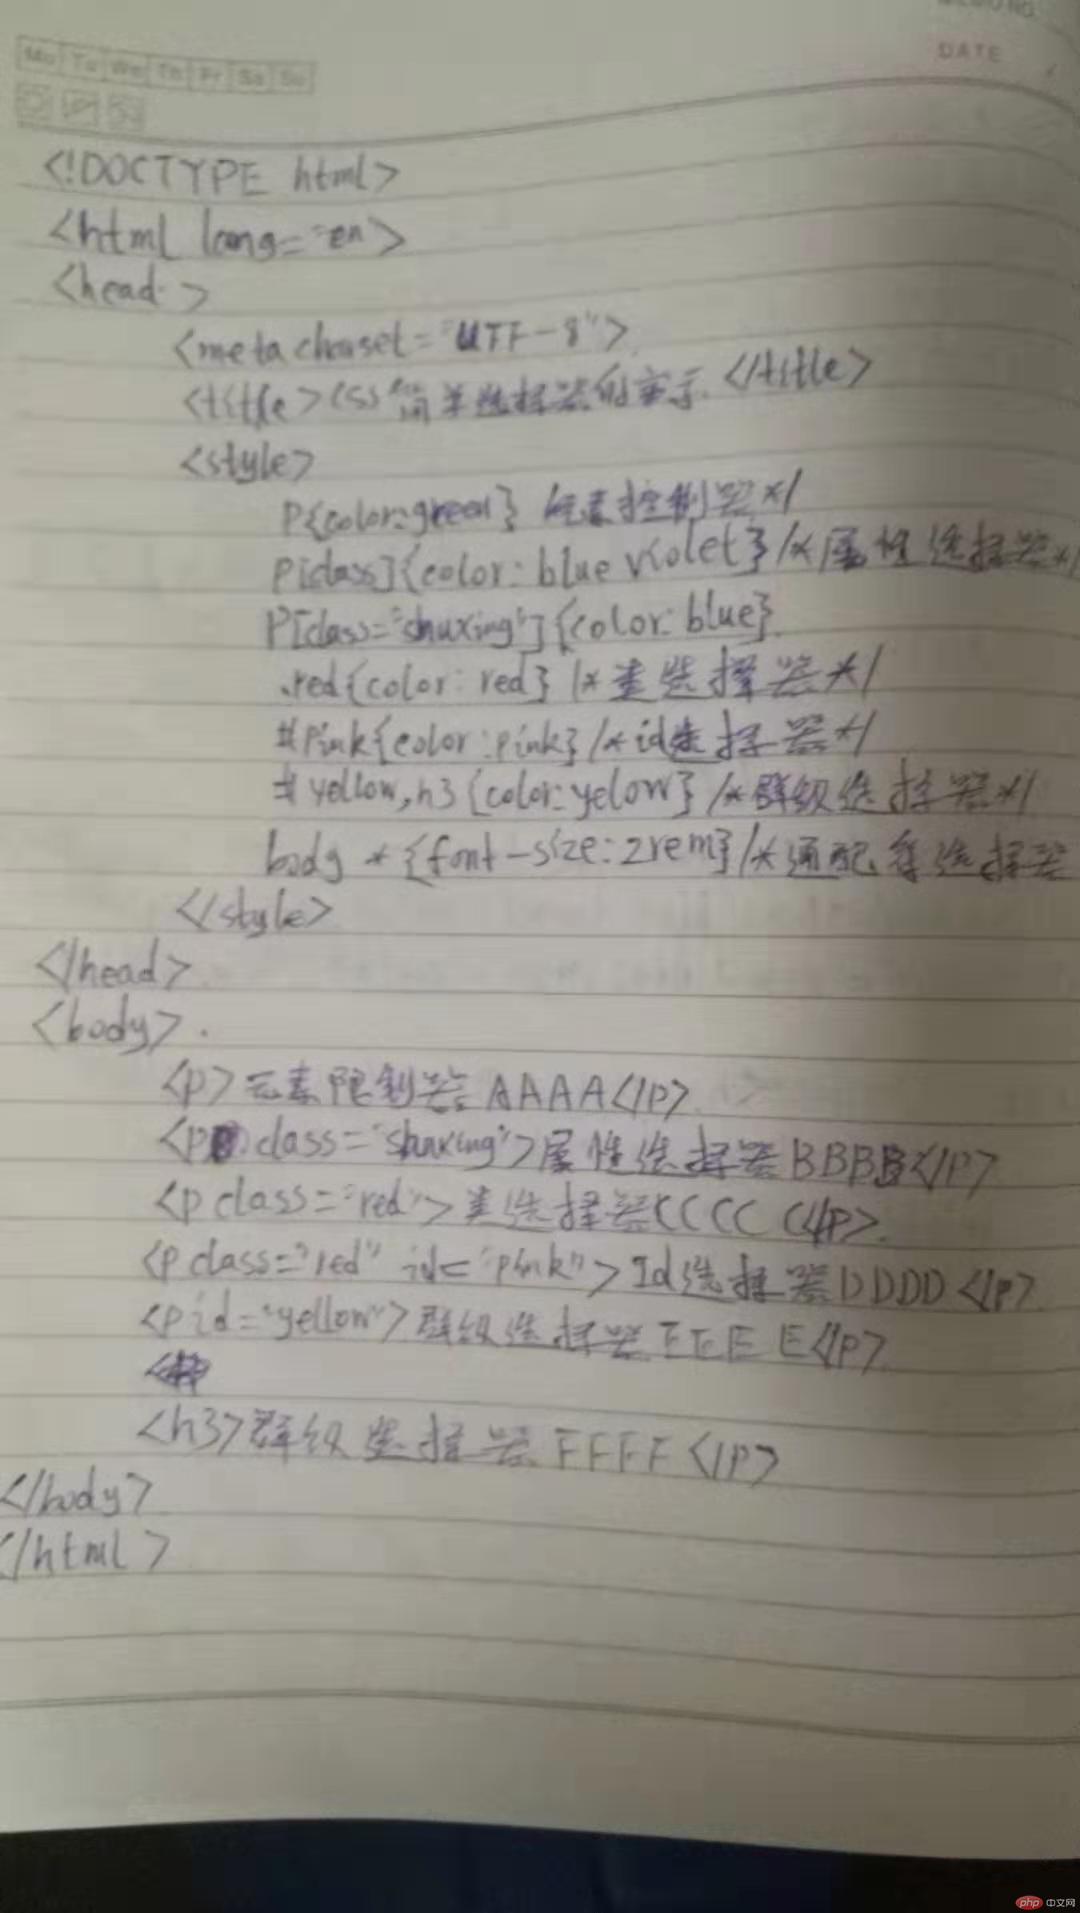 MEMO NO.
DATE
Mo Tu We Th Fr Sa Su
<!DOCTYPE html>
<html lang="en>
<head>
<meta charset="UTF-8">
<title>CSS简单选择器的演示</title>
<style>
p{color:green} 元素控制器*/
p[class]{color:blue violet}/*属性选择器*/
p[class="shuxing"]{color:blue}
.red{color:red}/*类选择器*/
#pink{color:pink}/*id选择器*/
#yellow,h3{color:yelow}/*群级选择器*/
body *{font-size:2rem}/*通配符选择器
</style>
</head>
<body>
<p>元素限制器AAAA</p>
<p class="shuxing">属性选择器BBBB</p>
<p class="red">类选择器CCCC</p>
<p class="red" id="pink">Id选择器DDDD</p>
<p id="yellow">群级选择器EEEE</p>
<h3>群级选择器FFFF</p>
</body>
</html>
php 中文网